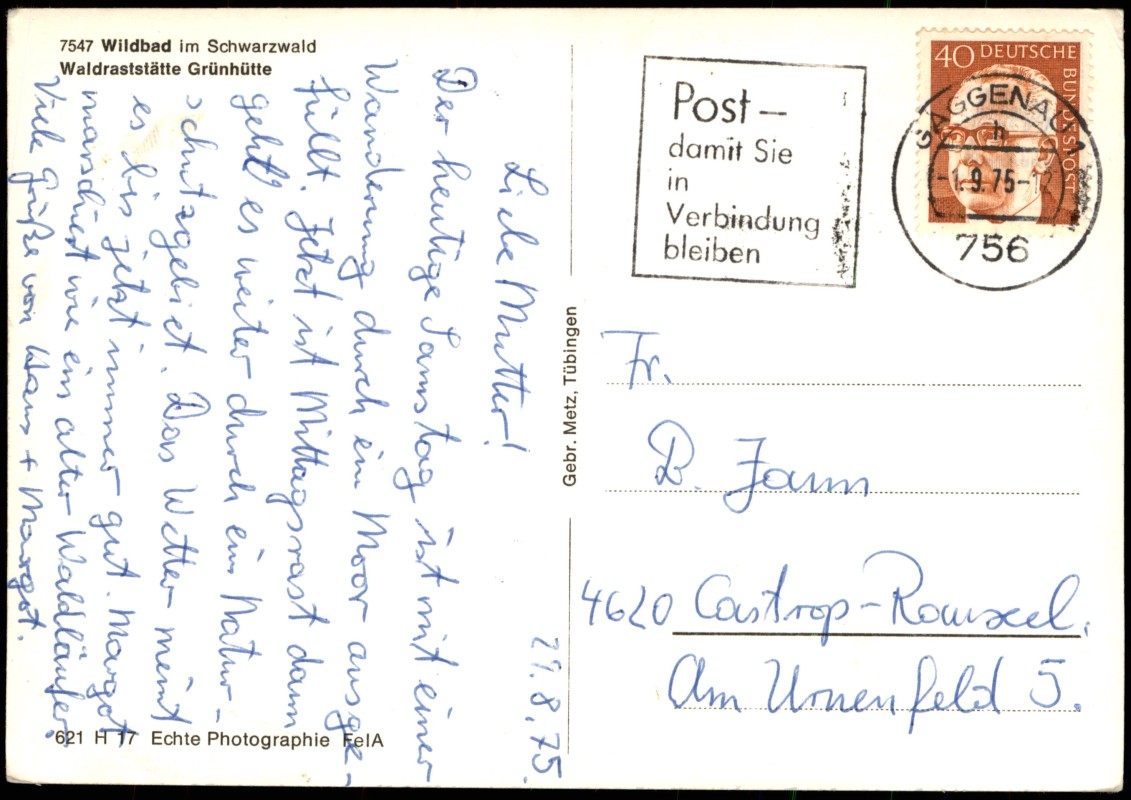 7547 Wildbad im Schwarzwald
Waldraststätte Grünhütte
29.8.75.
Liebe Mutter!
Der heutige Samstag ist mit einer
Wanderung durch ein Moor ausge-
füllt. Jetzt ist Mittagsrast dann
geht es weiter durch ein Natur-
schutzgebiet. Das Wetter meint
es bis jetzt immer gut. Margot
marschiert wie ein alter Waldläufer.
Viele Grüße von Hans + Margot.
621 H 17 Echte Photographie FelA
Gebr. Metz, Tübingen
Post –
damit Sie
in
Verbindung
bleiben
40 DEUTSCHE
BUNDESPOST
GAGGENAU 1
h
-1.9.75-12
756
Fr.
B. Jann
4620 Castrop-Rauxel.
Am Urnenfeld 5.